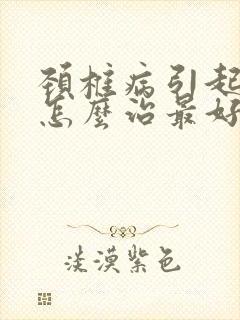 頚椎病引起
怎麼治最好
淡漠紫色